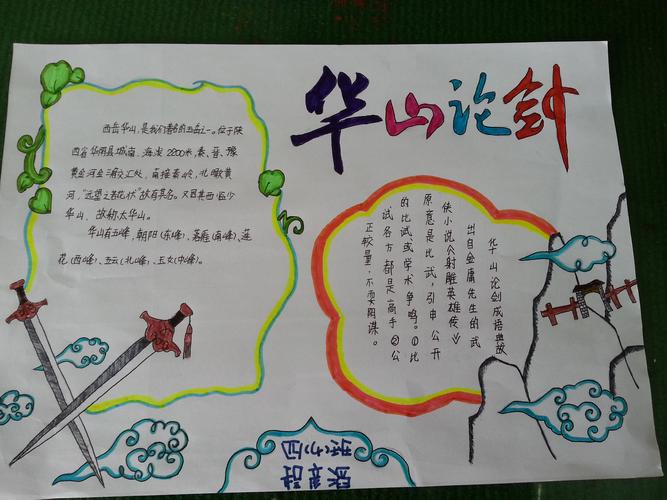 华山论剑
西岳华山，是我们著名的五岳之一。位于陕
西省华阴县城南，海拔2200米，秦、晋、豫
黄金河三角交汇处，南接秦岭，北瞰黄
河，"远望之若花状"故有其名。又因其西临少
华山，故称太华山。
华山有五峰，朝阳(东峰)、落雁(南峰)、莲
花(西峰)、云(北峰)、玉女(中峰)。
华山论剑成语典故
出自金庸先生的武
侠小说《射雕英雄传》
原意是比武，引申公开
的比试或学术争鸣。①比
试各方都是高手②公
正较量，不耍阴谋。